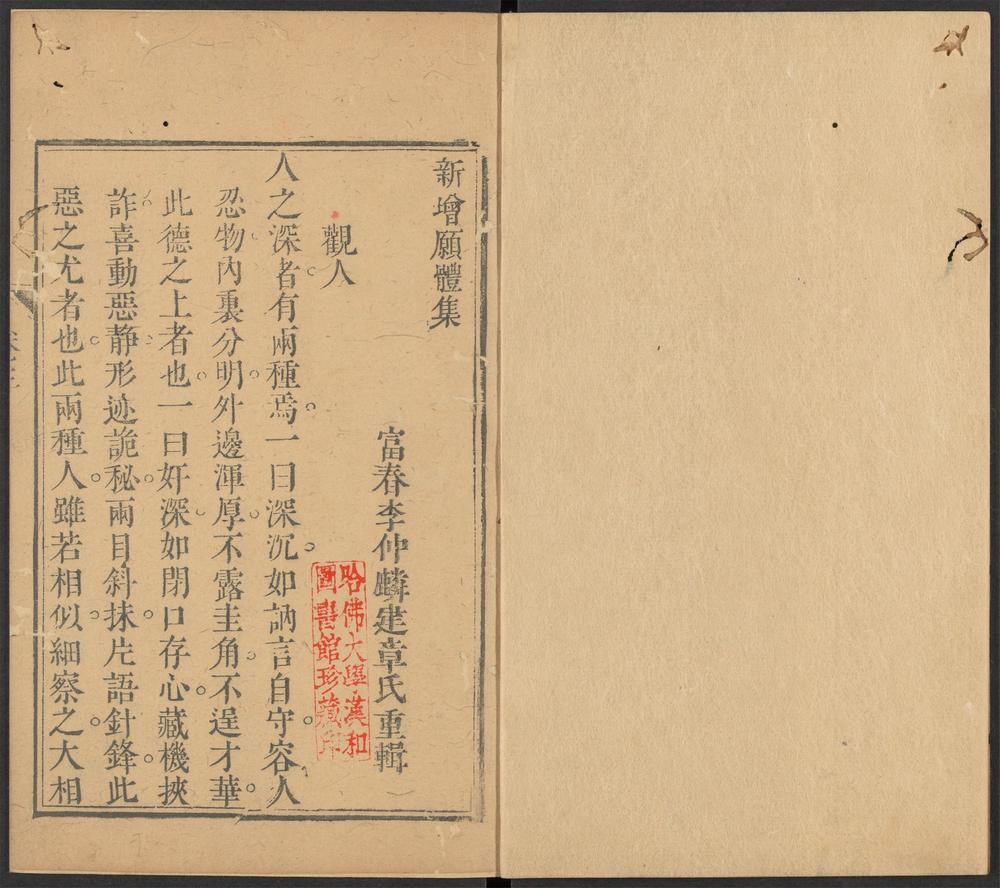 新增願體集
富春李仲麟建章氏重輯
觀人
人之深者有兩種焉一曰深沉如訥言自守容人
忍物內裏分明外邊渾厚不露圭角不逞才華
此德之上者也一曰奸深如閉口存心藏機挾
詐喜動惡静形迹詭秘兩目斜抹片語針鋒此
惡之尤者也此兩種人雖若相似細察之大相
哈佛大學漢和
圖書館珍藏印